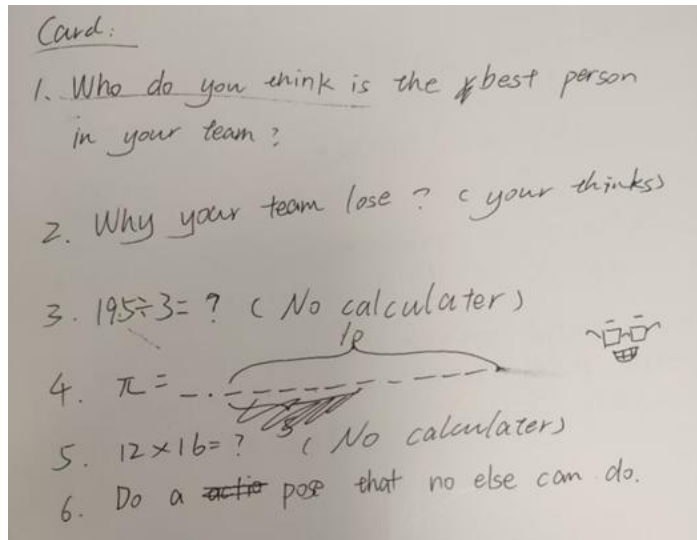 Card:
1. Who do you think is the best person
in your team?
2. Why your team lose? (your thinks)
3. 195÷3=? (No calculater)
10
4. π = _._ _ _ _ _ _ _ _ _ _
5
5. 12×16=? (No calculater)
6. Do a actio pose that no else can do.